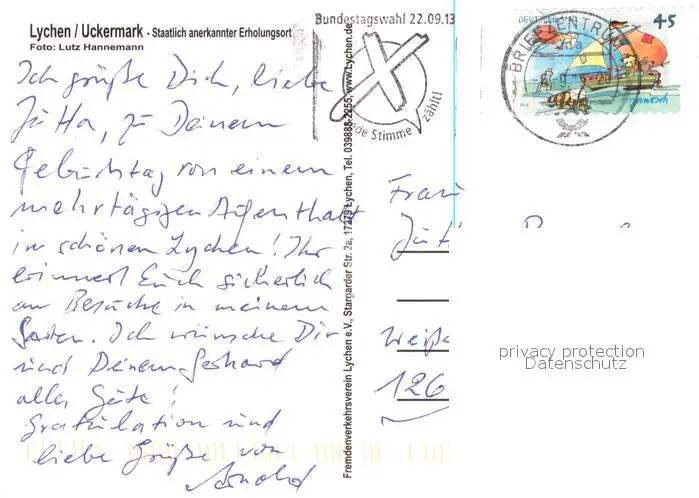 Lychen / Uckermark - Staatlich anerkannter Erholungsort
Foto: Lutz Hannemann
Ich grüße Dich, liebe
Jutta, zu Deinem
Geburtstag von einem
mehrtägigen Aufenthalt
im schönen Lychen! Ihr
erinnert Euch sicherlich
an Besuche in meinem
Garten. Ich wünsche Dir
und Deinem Gerhard
alles Gute!
Gratulation und
liebe Grüße von
Arnold
Fremdenverkehrsverein Lychen e.V., Stargarder Str. 2a, 17279 Lychen, Tel. 039888-2255, www.Lychen.de
Bundestagswahl 22.09.13
Jede Stimme zählt!
DEUTSCHLAND 45
BRIEFZENTRUM
janosch
Frau
Jutt
Weiße
126
privacy protection
Datenschutz